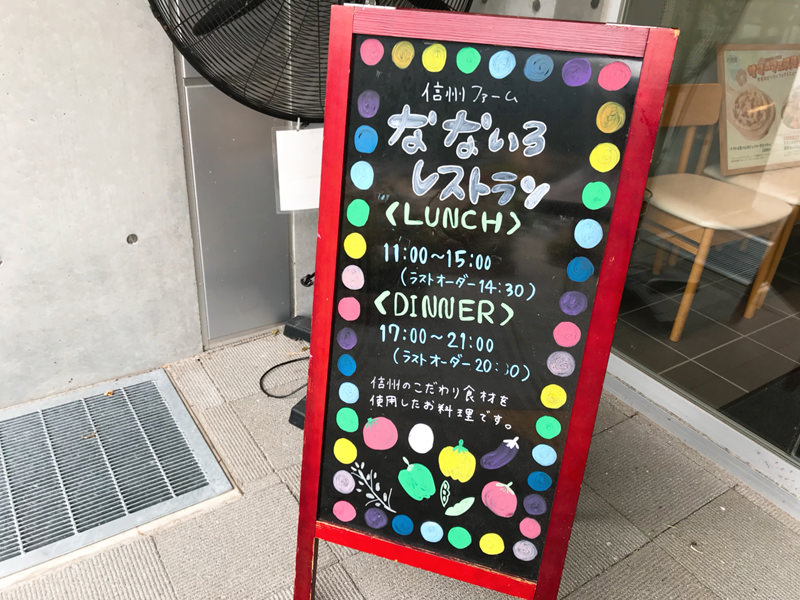 信州ファーム
なないろ
レストラン
<LUNCH>
11:00～15:00
(ラストオーダー14:30)
<DINNER>
17:00～21:00
(ラストオーダー20:30)
信州のこだわり食材を
使用したお料理です。